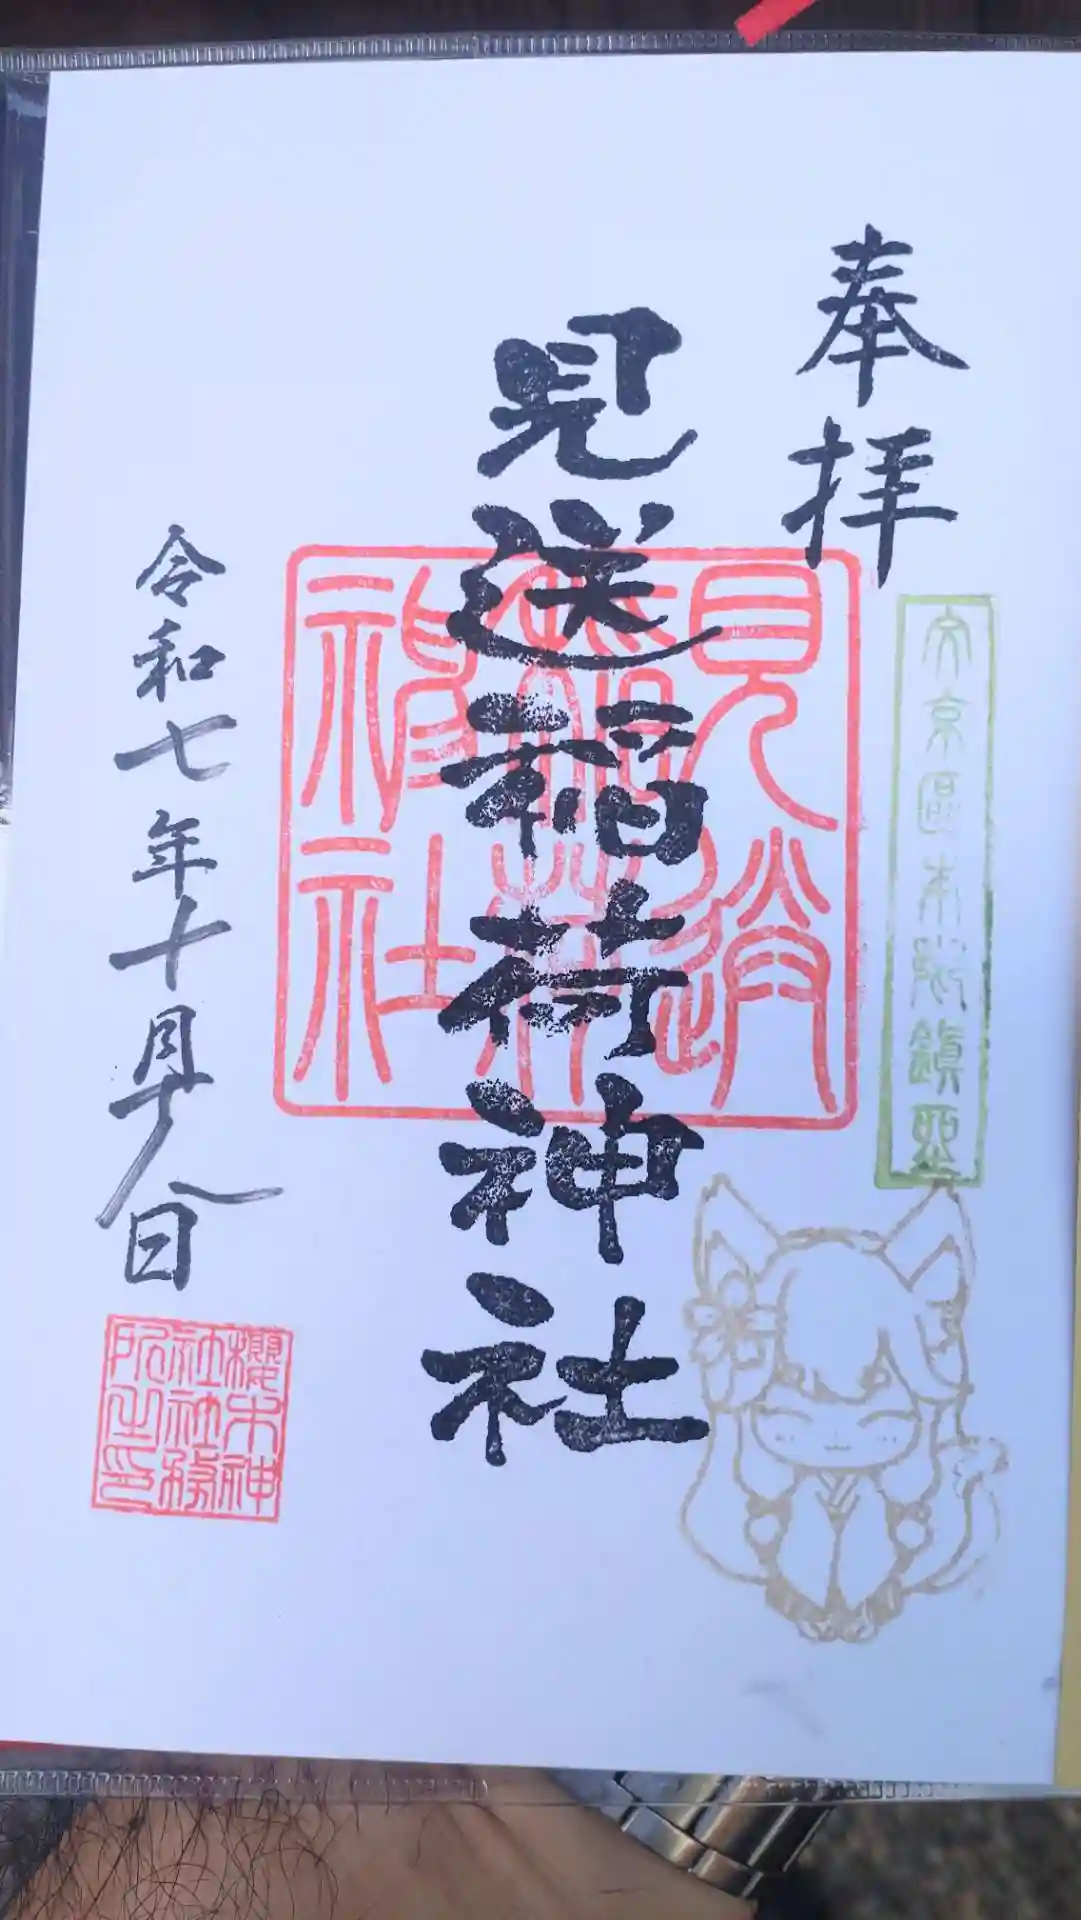 奉拝
文京區本郷鎮
見送稲荷神社
見送
稲荷
神社
令和七年十月十八日
櫻木神
社社務
所之印